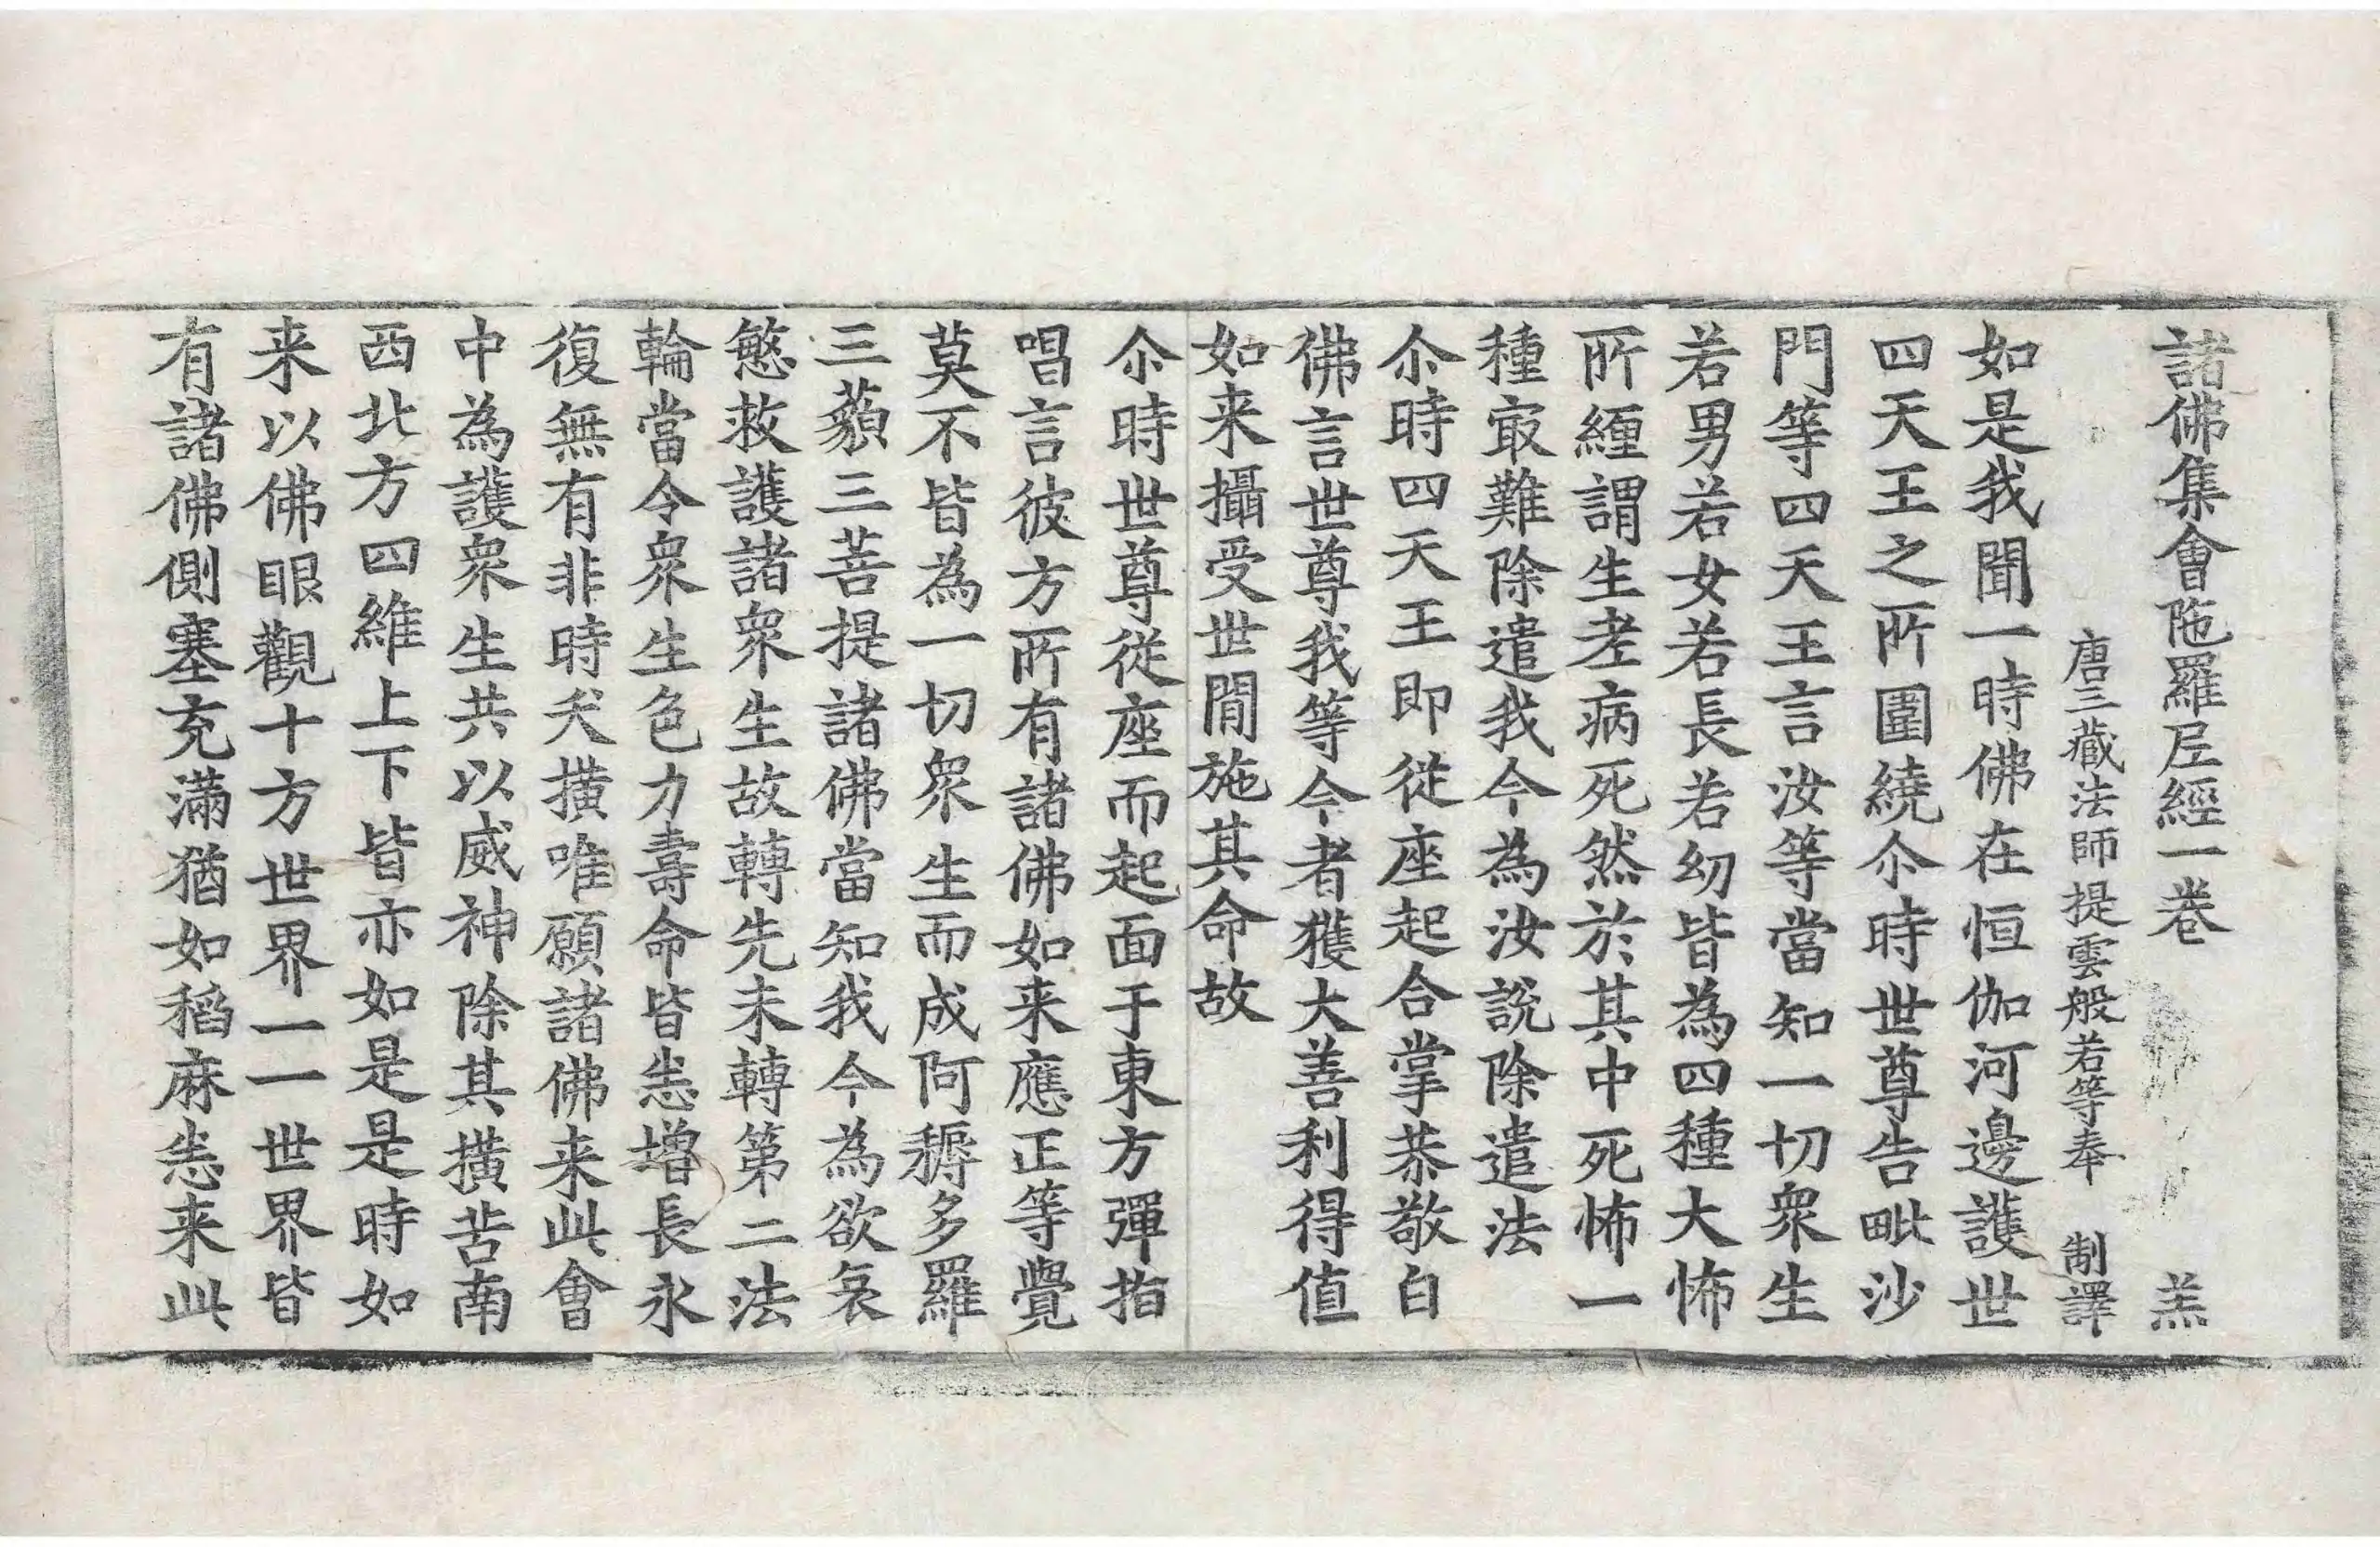 諸佛集會陁羅尼經一卷 羔
唐三藏法師提雲般若等奉 制譯
如是我聞一時佛在恒伽河邊護世
四天王之所圍繞尒時世尊告毗沙
門等四天王言汝等當知一切衆生
若男若女若長若幼皆為四種大怖
所纏謂生老病死然於其中死怖一
種㝡難除遣我今為汝說除遣法
尒時四天王即從座起合掌恭敬白
佛言世尊我等今者獲大善利得值
如来攝受世閒施其命故
尒時世尊從座而起面于東方彈指
唱言彼方所有諸佛如来應正等覺
莫不皆為一切衆生而成阿耨多羅
三藐三菩提諸佛當知我今為欲哀
慜救護諸衆生故轉先未轉第二法
輪當令衆生色力壽命皆悉增長永
復無有非時夭橫唯願諸佛来此會
中為護衆生共以威神除其橫苦南
西北方四維上下皆亦如是是時如
来以佛眼觀十方世界一一世界皆
有諸佛側塞充滿猶如稻麻悉来此